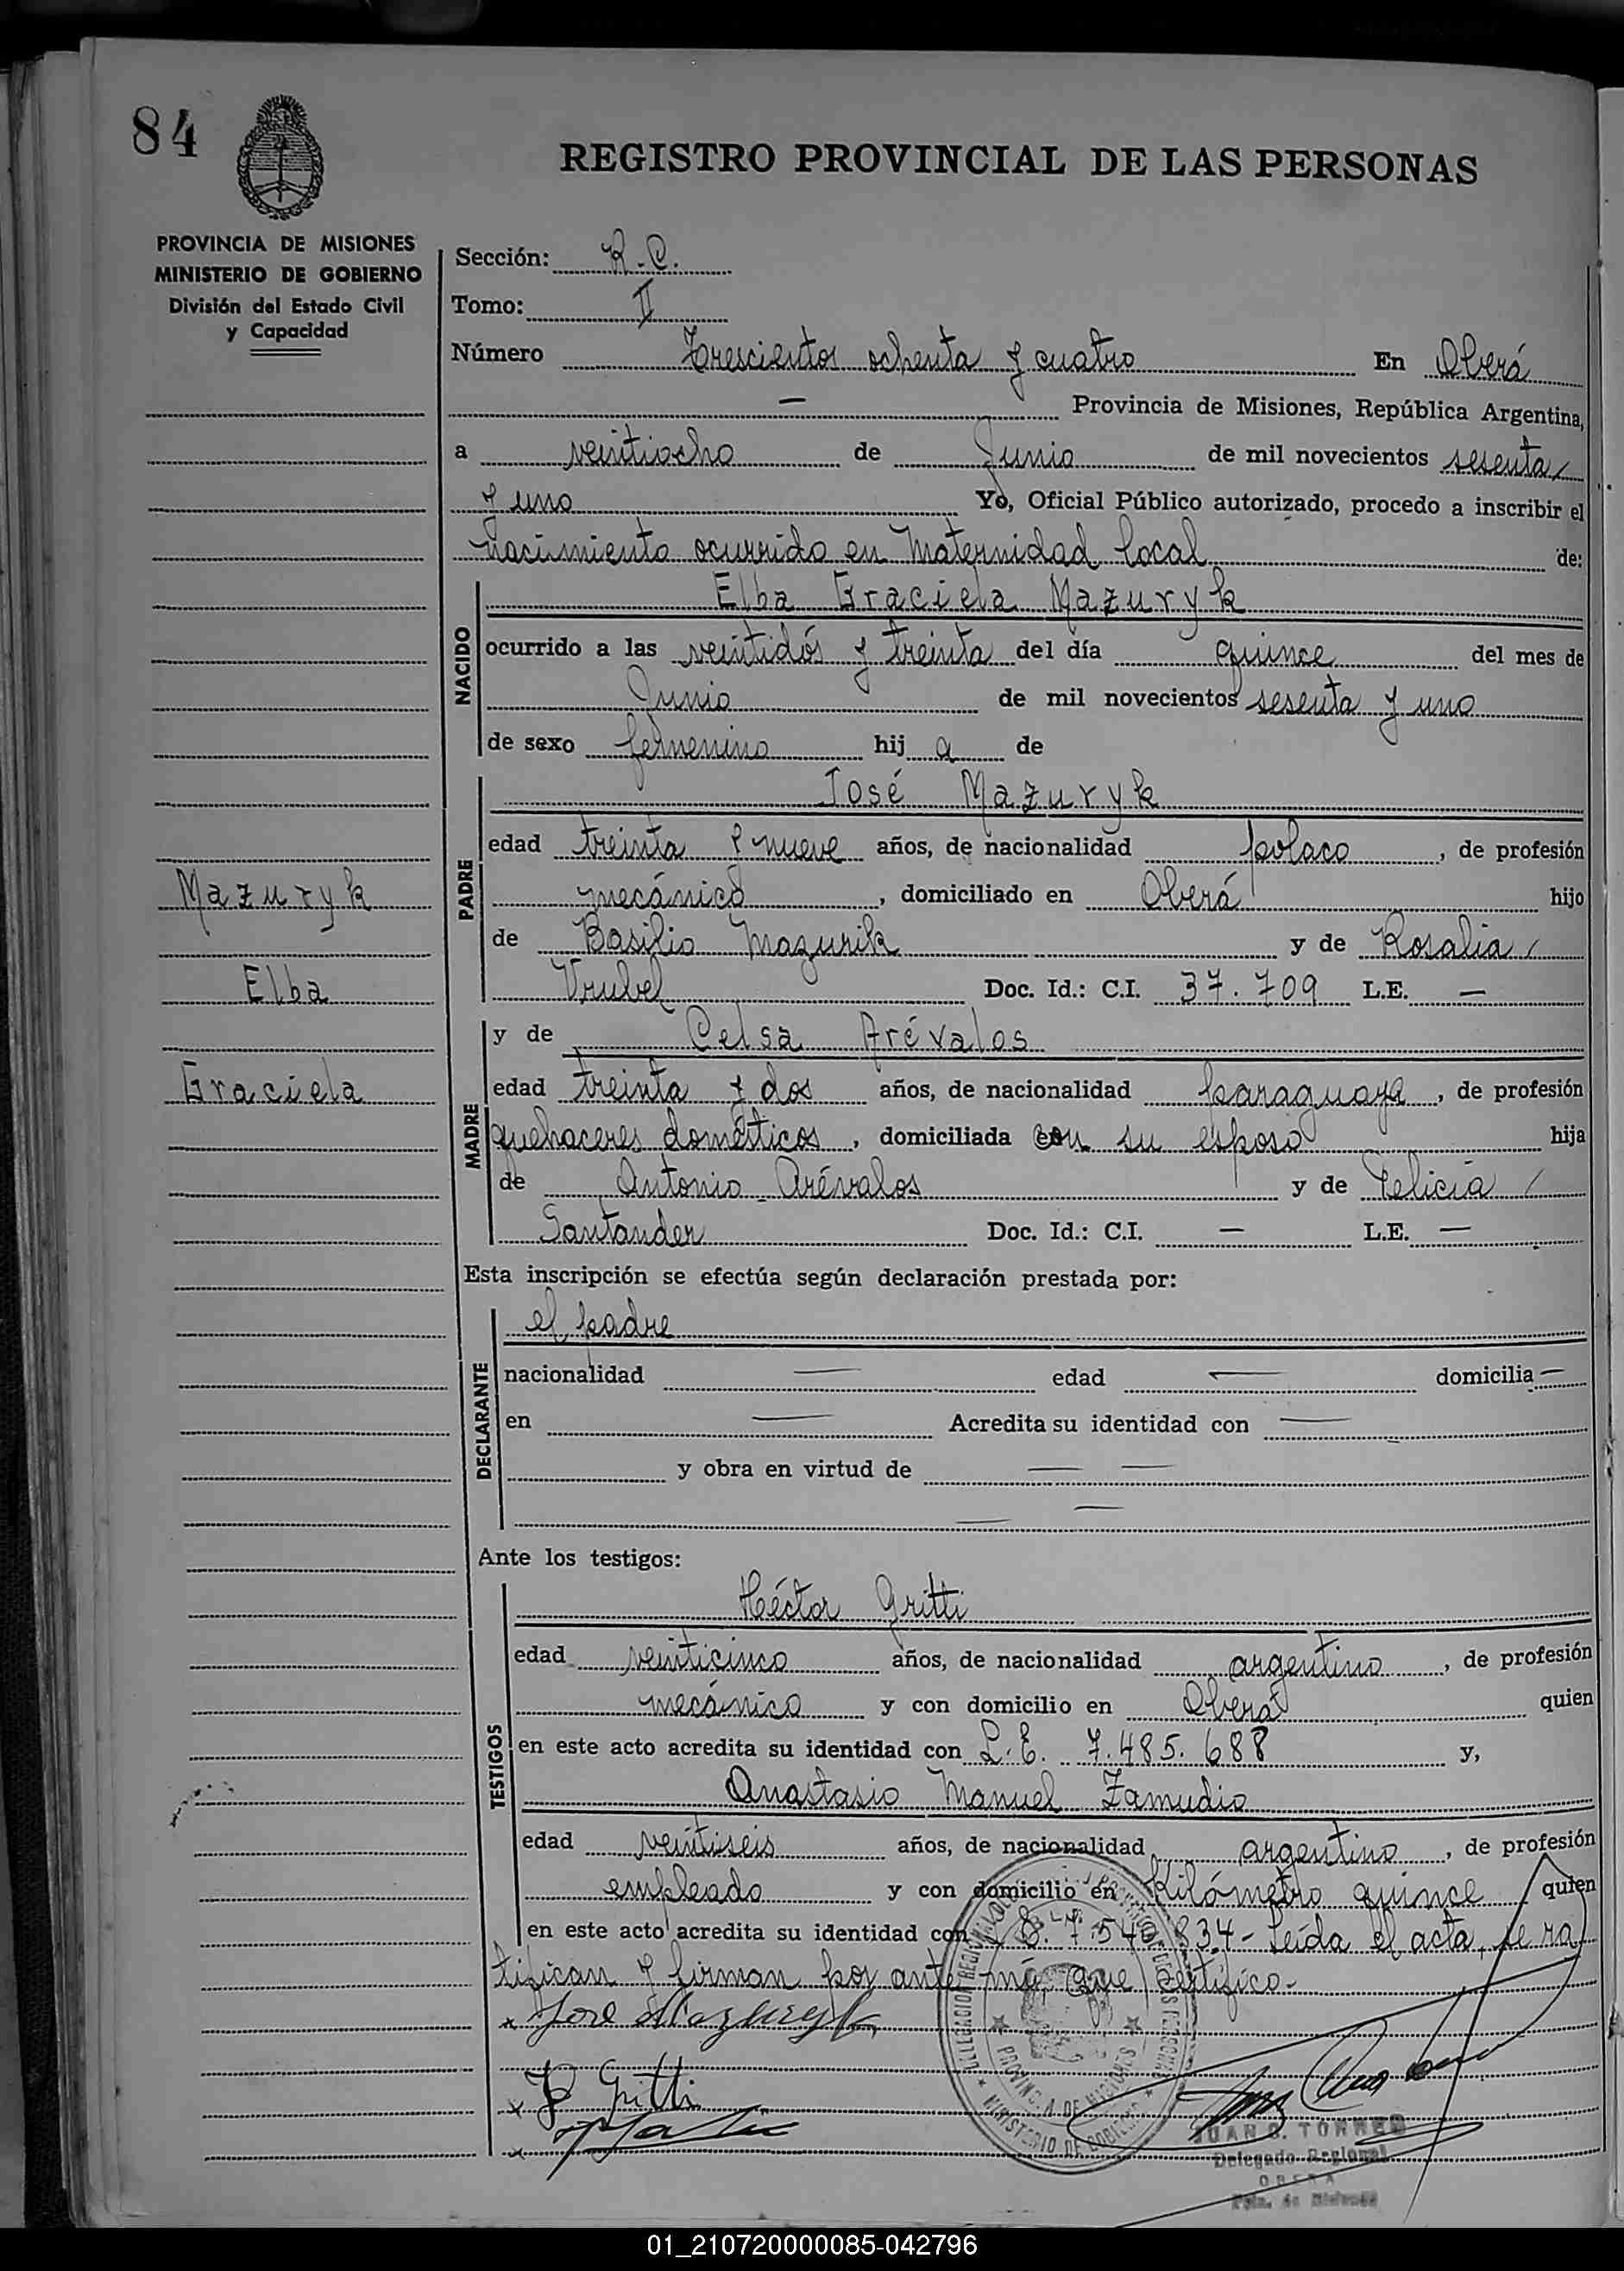 84
REGISTRO PROVINCIAL DE LAS PERSONAS
PROVINCIA DE MISIONES
MINISTERIO DE GOBIERNO
División del Estado Civil
y Capacidad
Sección: R.C.
Tomo: II
Número Trescientos ochenta y cuatro En Oberá
— Provincia de Misiones, República Argentina,
a veintiocho de Junio de mil novecientos sesenta/
y uno Yo, Oficial Público autorizado, procedo a inscribir el
nacimiento ocurrido en Maternidad local de:
NACIDO
Elba Graciela Mazuryk
ocurrido a las veintidós y treinta del día quince del mes de
Junio de mil novecientos sesenta y uno
de sexo femenino hij a de
PADRE
José Mazuryk
edad treinta y nueve años, de nacionalidad polaco, de profesión
mecánico, domiciliado en Oberá hijo
de Basilio Mazurik y de Rosalia/
Vrubel Doc. Id.: C.I. 37.709 L.E. —
Mazuryk
Elba
Graciela
MADRE
y de Celsa Arévalos
edad treinta y dos años, de nacionalidad paraguaya, de profesión
quehaceres domésticos, domiciliada con su esposo hija
de Antonio Arévalos y de Felicia /
Santander Doc. Id.: C.I. — L.E. —
Esta inscripción se efectúa según declaración prestada por:
DECLARANTE
el padre
nacionalidad — edad — domicilia —
en — Acredita su identidad con —
y obra en virtud de — —
— —
Ante los testigos:
TESTIGOS
Héctor Gritti
edad veinticinco años, de nacionalidad argentino, de profesión
mecánico y con domicilio en Oberá quien
en este acto acredita su identidad con L.E. 7.485.688 y,
Anastasio Manuel Zamudio
edad veintiseis años, de nacionalidad argentino, de profesión
empleado y con domicilio en Kilómetro quince quien
en este acto acredita su identidad con 7.540.834- Leída el acta, se ra
tifican y firman por ante mí, que certifico-
x José Mazuryk
x Gritti
x
PROVINCIA DE MISIONES
MINISTERIO DE GOBIERNO
JUAN TORRES
Delegado Regional
OBERA
01_210720000085-042796